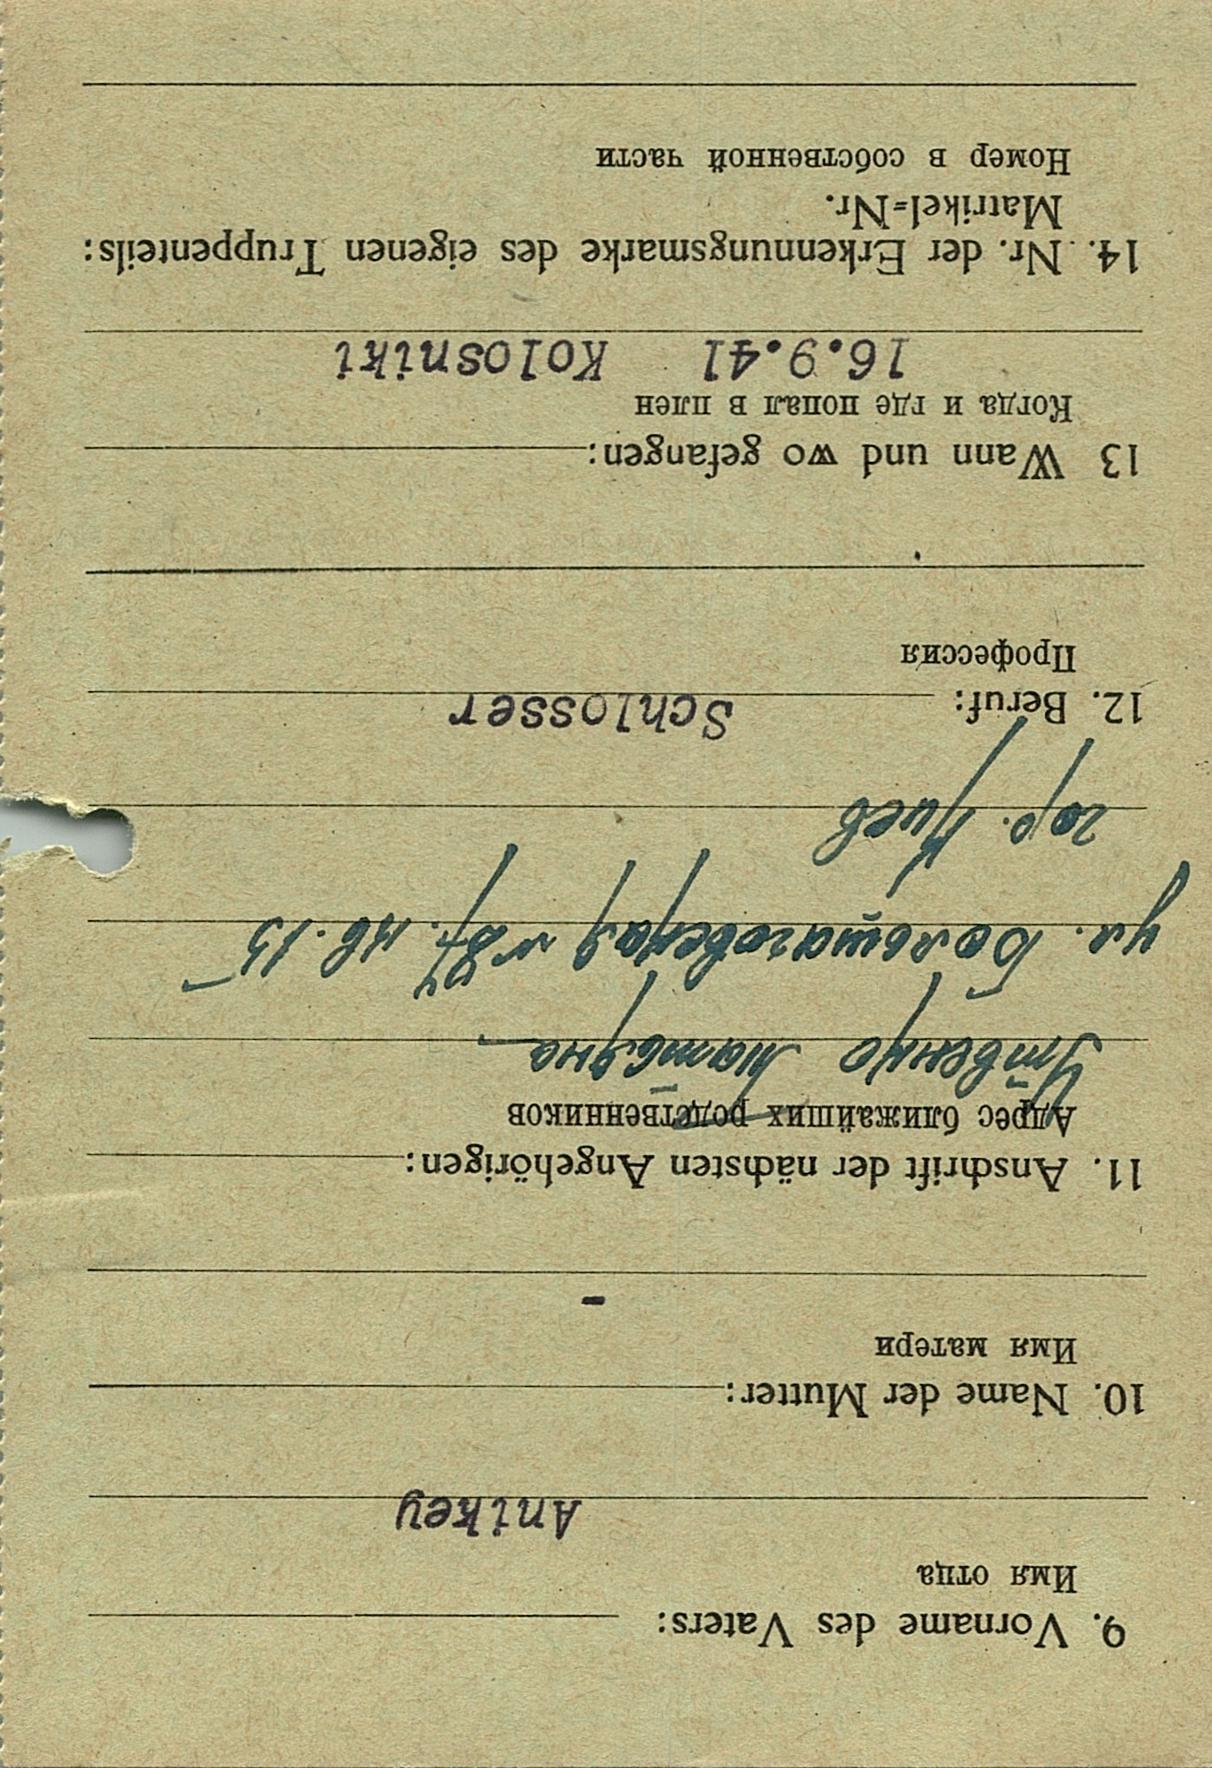 9. Vorname des Vaters:
Имя отца
Anikey
10. Name der Mutter:
Имя матери
-
11. Anschrift der nächsten Angehörigen:
Адрес ближайших родственников
Татьяна
ул. №
гор. Киев
12. Beruf: Schlosser
Профессия
13 Wann und wo gefangen:
Когда и где попал в плен
16.9.41 Kolosniki
14. Nr. der Erkennungsmarke des eigenen Truppenteils:
Matrikel=Nr.
Номер в собственной части